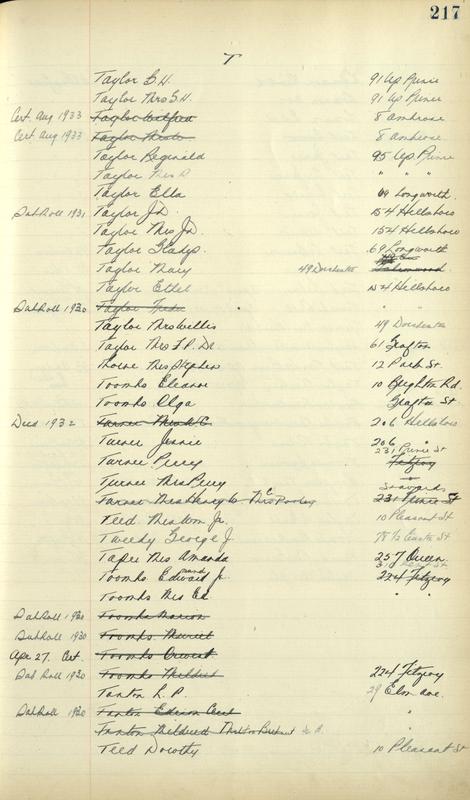 217
T
Taylor G.H. 91 Up Prince
Taylor Mrs G.H. 91 Up Prince
Cert. Aug 1933 Taylor Wilfred 8 Ambrose
Cert Aug 1933 Taylor 8 Ambrose
Taylor Reginald 95 Up. Prince
Taylor Mrs R " " "
Taylor Ella 69 Longworth
Sub Roll 1931 Taylor J.D. 154 Hillsboro
Taylor Mrs J.D. 154 Hillsboro
Taylor Gladys 69 Longworth
Taylor Mary 49 Dorchester
Taylor Ethel 154 Hillsboro
Sub Roll 1930 Taylor
Taylor Mrs Willis 49 Dorchester
Taylor Mrs F.P. De 61 Grafton
Thorne Mrs Stephen 12 Park St.
Toombs Eleanor 10 Brighton Rd.
Toombs Olga Grafton St
Died 1932 Turner 206 Hillsboro
Turner Jennie 206 "
Turner Percy 231 Prince St Fitzroy
Turner Mrs Percy
Turner Mrs Henry C 231 Prince St
Teed Mrs Wm Jr. 10 Pleasant St
Tweedy George J
Taper Mrs Amanda 257 Queen
Toombs Edward Jr. 224 Fitzroy
Toombs Mrs Ed. " "
Sub Roll 1930 Toombs Marion
Sub Roll 1930 Toombs Muriel
Apr 27. Cert. Toombs
Sub Roll 1930 Toombs Mildred 224 Fitzroy
Tanton L. P. 29 Elm Ave.
Sub Roll 1930 Tanton Edison Cecil "
Tanton Mildred
Teed Dorothy 10 Pleasant St